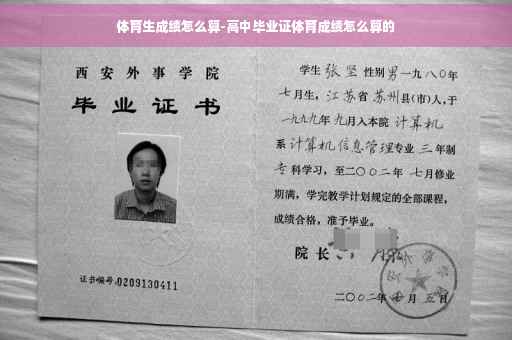 体育生成绩怎么算-高中毕业证体育成绩怎么算的
西安外事学院
毕业证书
证书编号:0209130411
学生 张坚 性别 男 一九八〇年
七月生, 江苏省 苏州县(市)人,于
一九九九年 九月入本院 计算机
系 计算机信息管理专业 三 年制
专 科学习, 至二〇〇二年 七月修业
期满, 学完教学计划规定的全部课程,
成绩合格, 准予毕业。
院长
二〇〇二年 七月 五日